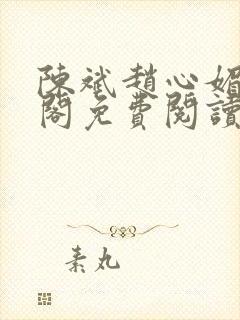 陳斌趙心媚
閣免費閱讀
素丸